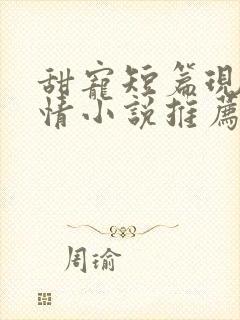 甜寵短篇現
情小說推薦
周瑜